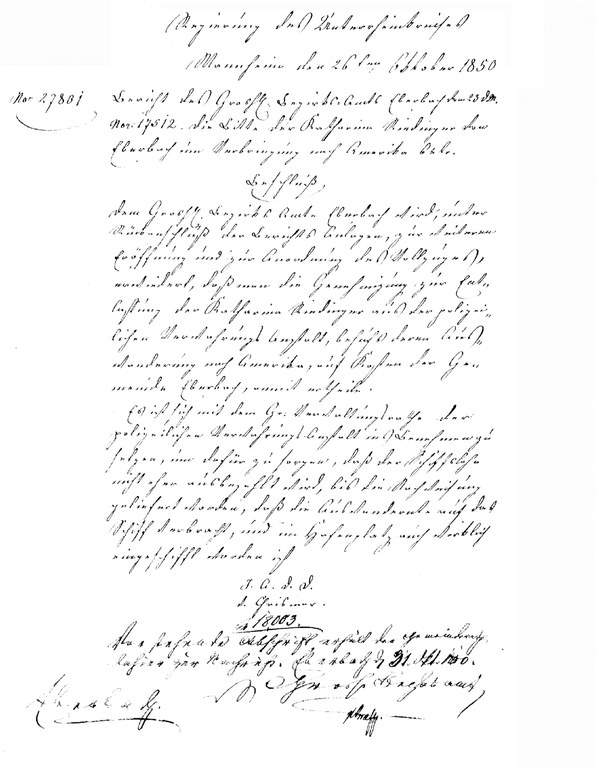 Regierung des Unterrheinkreises
Mannheim den 26ten Oktober 1850
Nro. 27801
Bericht des Großh. Bezirks-Amts Eberbach den 23 d.M.
Nro. 17512. die Bitte der Katharina Riedinger von
Eberbach um Verbringung nach Amerika betr.
Beschluß,
Dem Großh. Bezirks Amte Eberbach wird, unter
Rückanschluß der Berichts Anlagen, zur weiteren
Eröffnung und zur Anordnung des Vollzuges,
erwiedert, daß man die Genehmigung zur Ent-
lassung der Katharina Riedinger aus der polizei-
lichen Verwahrungs Anstalt, behufs deren Aus-
wanderung nach Amerika, auf Kosten der Ge-
meinde Eberbach, anmit ertheile.
Es ist sich mit dem Gr. Verwaltungsrathe der
polizeilichen Verwahrungs-Anstalt ins Benehmen zu
setzen, um dafür zu sorgen, daß der Schiffslohn
nicht eher ausbezahlt wird, bis die Nachweisung
geliefert worden, daß die Auswandernde auf das
Schiff verbracht, und im Hafenplatz auch wirklich
eingeschifft worden ist
J. A. d. D.
v. Chrismar.
18003.
Vorstehende Abschrift erhält der Gemeinderath
dahier zur Nachricht. Eberbach d 31. Okt. 1850.
Großh Bezirksamt
Eberbach.